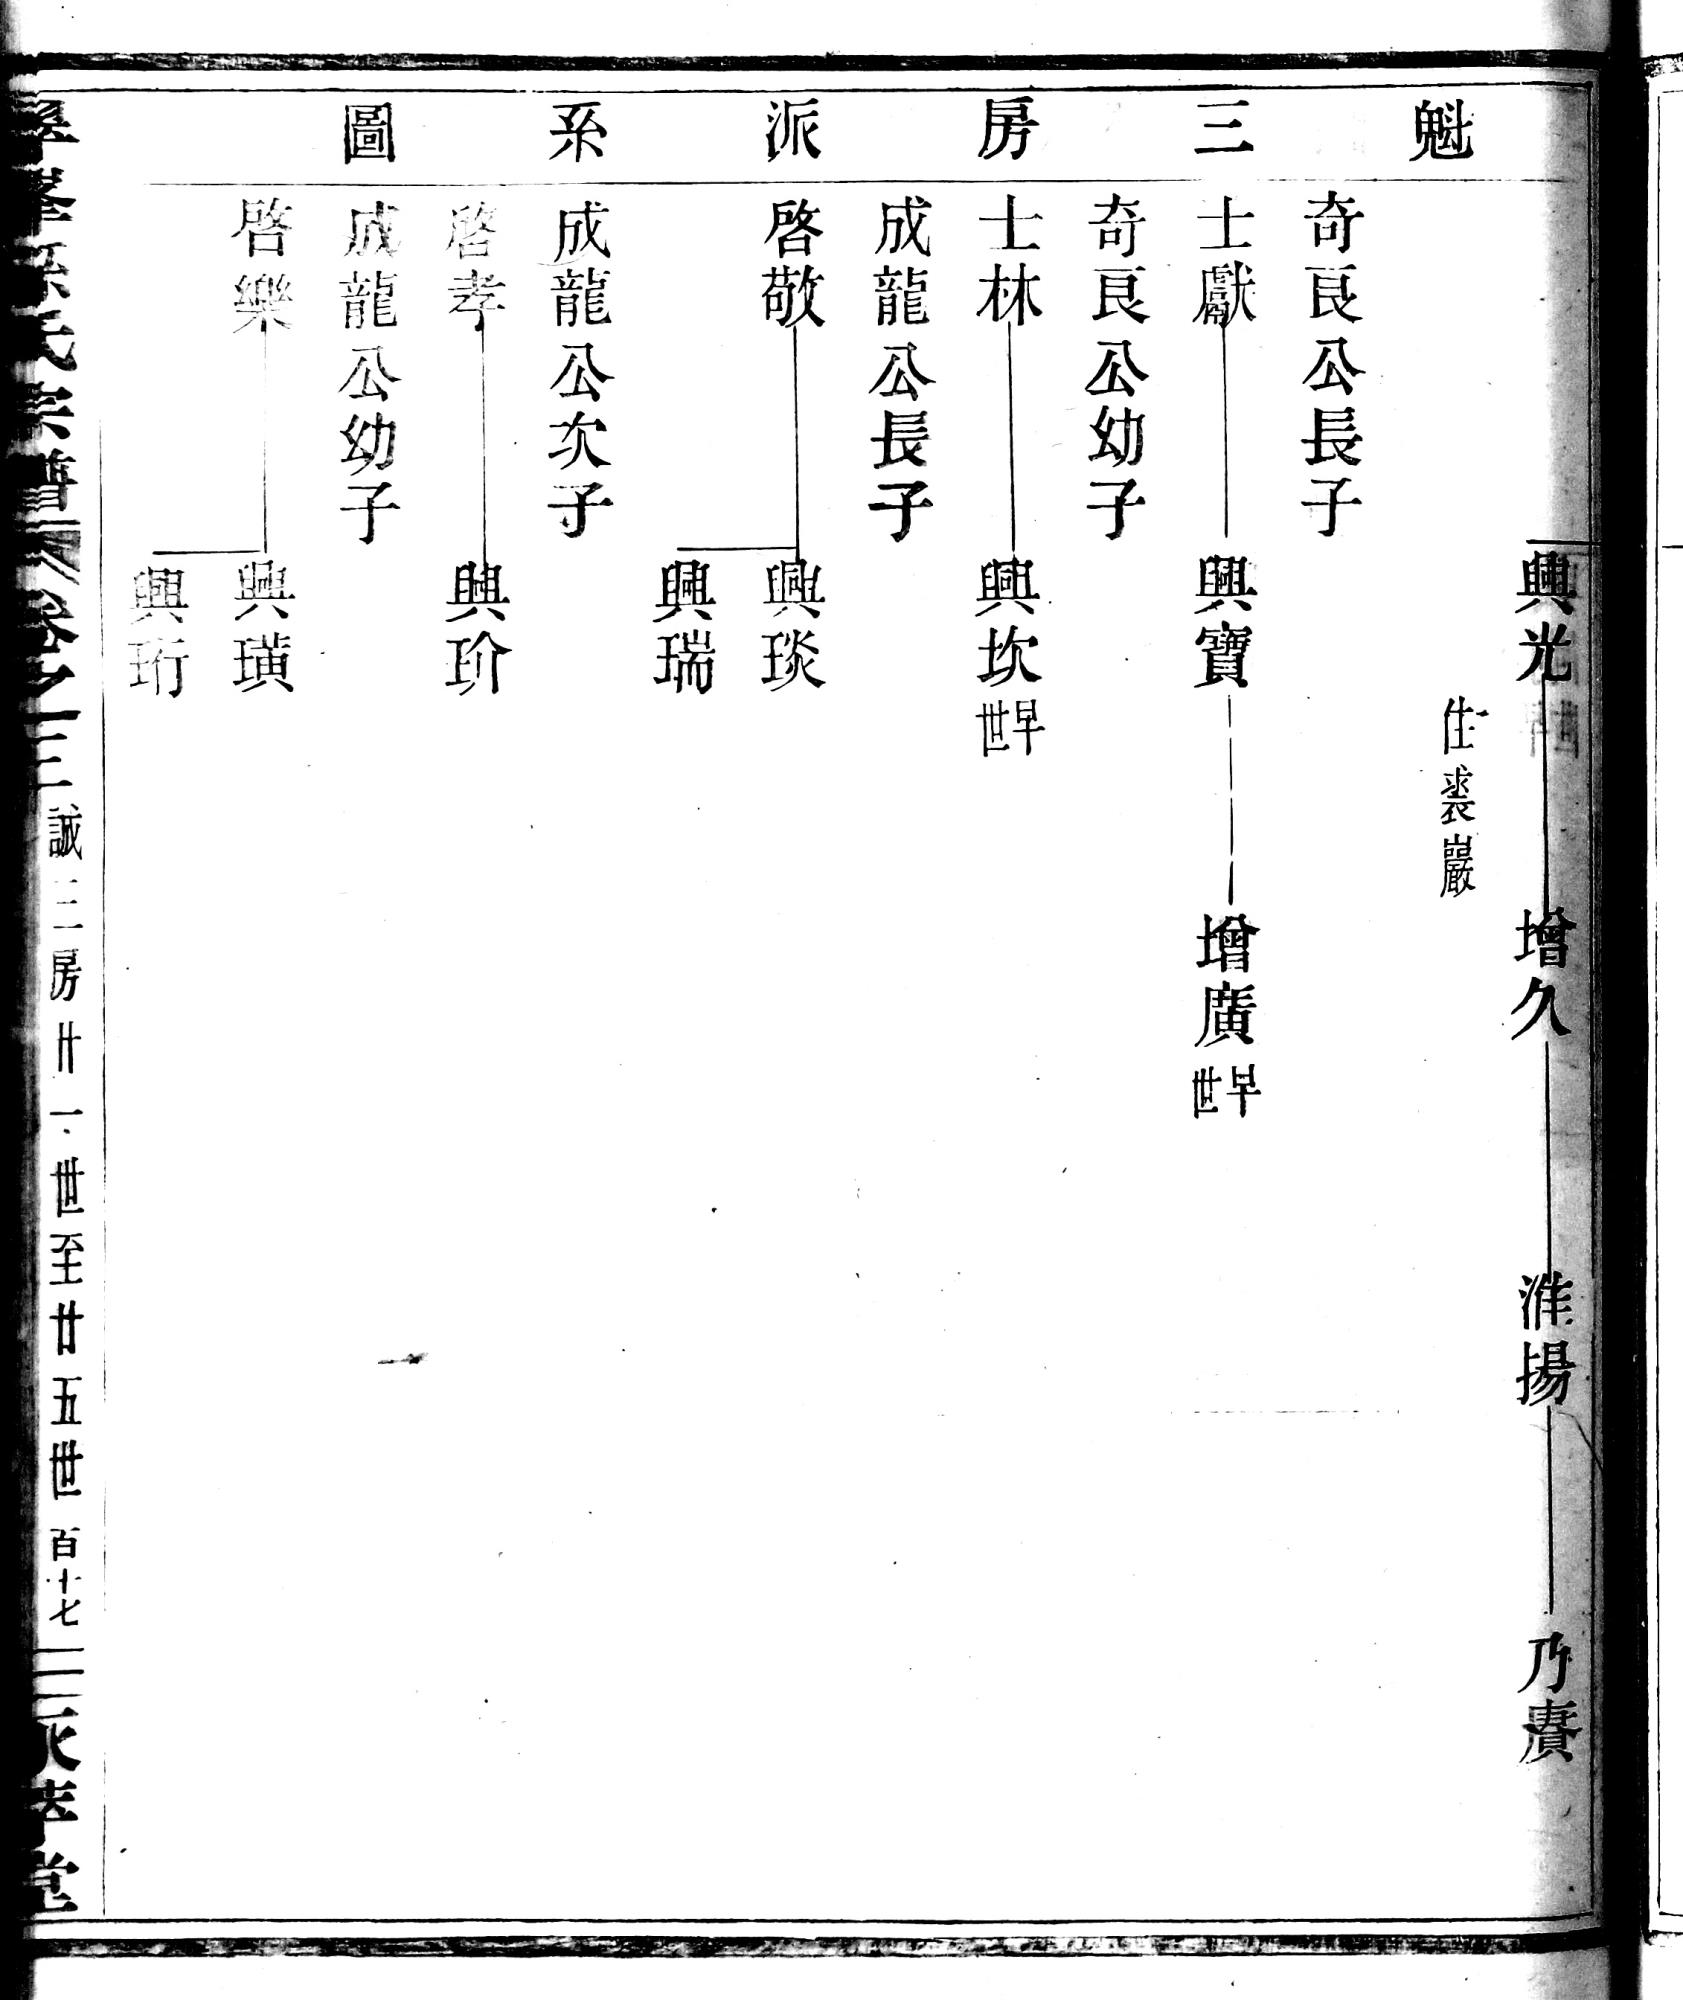 魁三房派系圖
興光
增久
淮揚
乃賡
住裘巖
奇良公長子
士獻
興寶
增廣
早世
奇良公幼子
士林
興坎
早世
成龍公長子
啓敬
興琰
興瑞
成龍公次子
啓孝
興玠
成龍公幼子
啓樂
興璜
興珩
氏宗譜
卷之三
誠三房廿一世至廿五世
百十七
堂